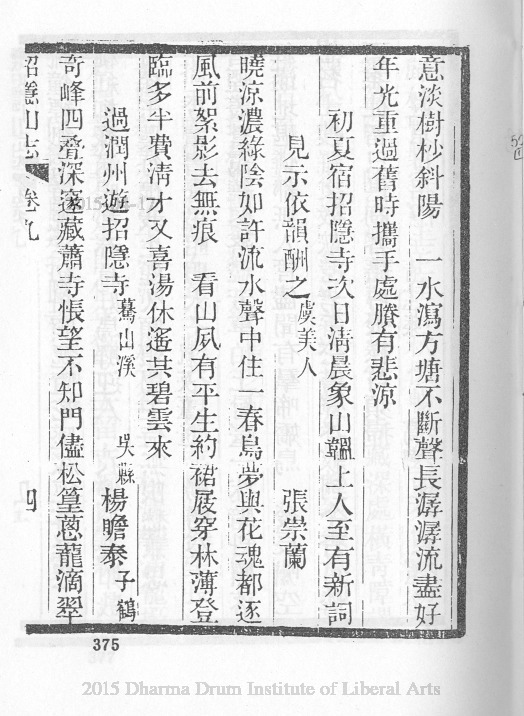 意淡樹杪斜陽　一水瀉方塘不斷聲長潺潺流盡好
年光重過舊時攜手處賸有悲涼
初夏宿招隱寺次日清晨象山韞上人至有新詞
見示依韻酬之虞美人　張崇蘭
曉涼濃綠陰如許流水聲中住一春鳥夢與花魂都逐
風前絮影去無痕　看山夙有平生約裙屐穿林薄登
臨多半費清才又喜湯休遙共碧雲來
過潤州遊招隱寺驀山溪　吳縣楊瞻泰子鶴
奇峰四疊深邃藏蕭寺悵望不知門儘松篁蔥蘢滴翠
招隱山志　卷九　四
375
2015 Dharma Drum Institute of Liberal Arts